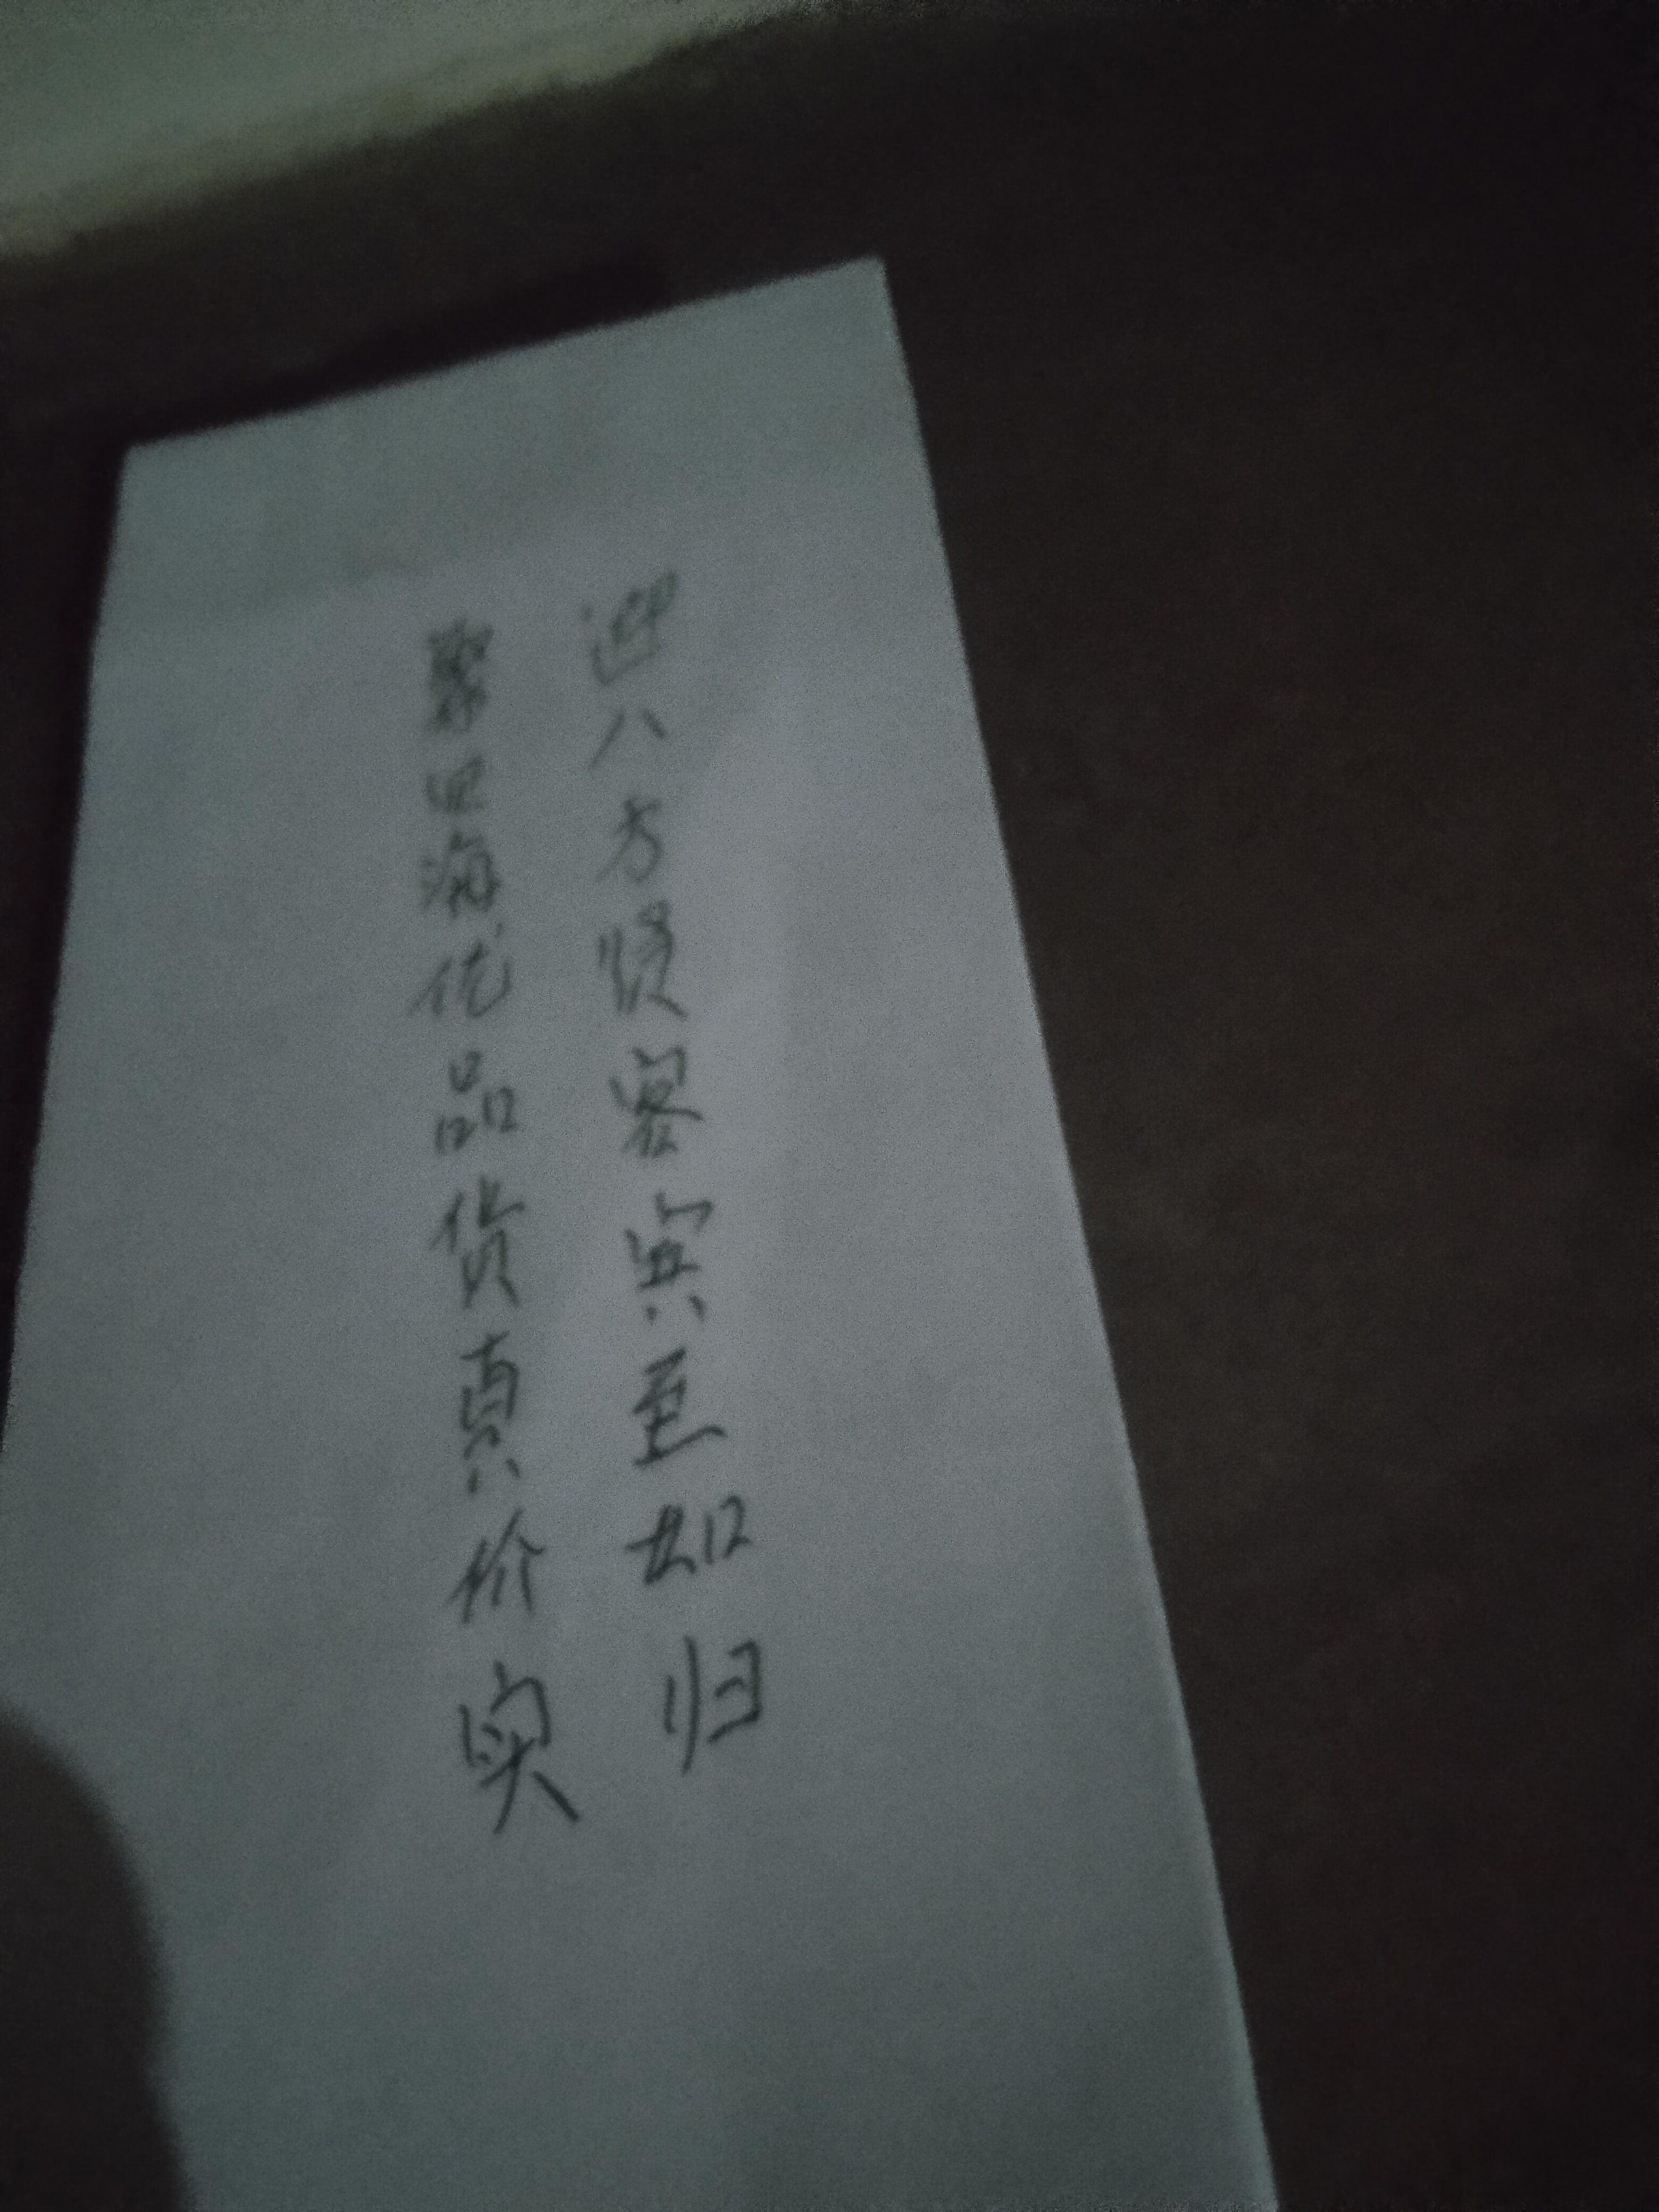 迎八方贤客宾至如归
聚四海优品货真价实